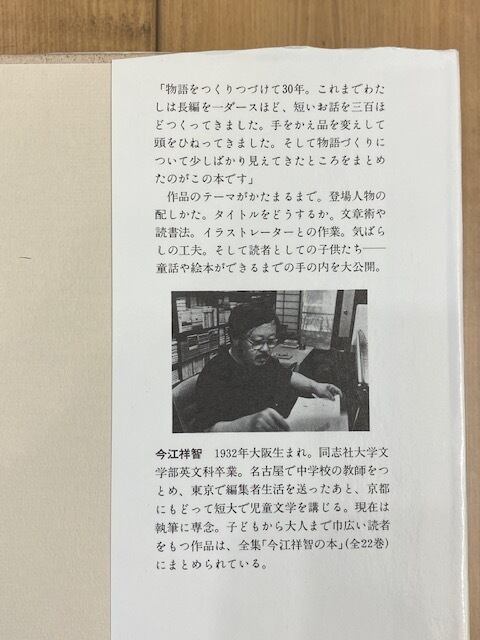 「物語をつくりつづけて30年。これまでわた
しは長編を一ダースほど、短いお話を三百ほ
どつくってきました。手をかえ品を変えして
頭をひねってきました。そして物語づくりに
ついて少しばかり見えてきたところをまとめ
たのがこの本です」
作品のテーマがかたまるまで。登場人物の
配しかた。タイトルをどうするか。文章術や
読書法。イラストレーターとの作業。気ばら
しの工夫。そして読者としての子供たち──
童話や絵本ができるまでの手の内を大公開。
今江祥智 1932年大阪生まれ。同志社大学文
学部英文科卒業。名古屋で中学校の教師をつ
とめ、東京で編集者生活を送ったあと、京都
にもどって短大で児童文学を講じる。現在は
執筆に専念。子どもから大人まで巾広い読者
をもつ作品は、全集「今江祥智の本」(全22巻)
にまとめられている。